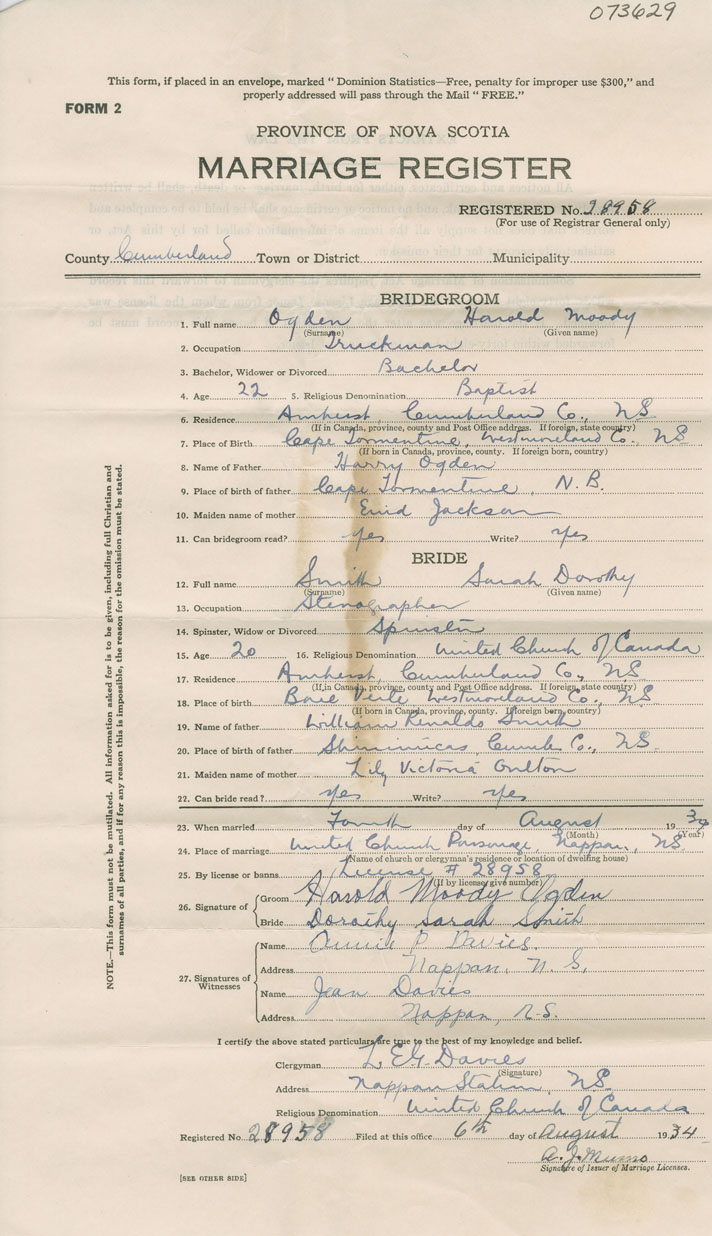 073629
This form, if placed in an envelope, marked " Dominion Statistics—Free, penalty for improper use $300," and
properly addressed will pass through the Mail " FREE."
FORM 2
PROVINCE OF NOVA SCOTIA
MARRIAGE REGISTER
REGISTERED No. 28958
(For use of Registrar General only)
County Cumberland Town or District Municipality
BRIDEGROOM
1. Full name Ogden Harold Moody
(Surname) (Given name)
2. Occupation Truckman
3. Bachelor, Widower or Divorced Bachelor
4. Age 22 5. Religious Denomination Baptist
6. Residence Amherst, Cumberland Co., NS
(If in Canada, province, county and Post Office address. If foreign, state country)
7. Place of Birth Cape Tormentine, Westmoreland Co. NS
(If born in Canada, province, county. If foreign born, country)
8. Name of Father Harry Ogden
9. Place of birth of father Cape Tormentine, N.B.
10. Maiden name of mother Enid Jackson
11. Can bridegroom read? yes Write? yes
BRIDE
12. Full name Smith Sarah Dorothy
(Surname) (Given name)
13. Occupation Stenographer
14. Spinster, Widow or Divorced Spinster
15. Age 20 16. Religious Denomination United Church of Canada
17. Residence Amherst, Cumberland Co., NS
(If in Canada, province, county and Post Office address. If foreign, state country)
18. Place of birth Baie Verte Westmoreland Co., NS
(If born in Canada, province, county. If foreign born, country)
19. Name of father William Renaldo Smith
20. Place of birth of father Shinimicas, Cumb. Co., NS
21. Maiden name of mother Lily Victoria Oulton
22. Can bride read? yes Write? yes
23. When married Fourth day of August 1934
(Month) (Year)
24. Place of marriage United Church Parsonage, Nappan, NS
(Name of church or clergyman's residence or location of dwelling house)
25. By license or banns License # 28958
(If by license give number)
26. Signature of Groom Harold Moody Ogden
Bride Dorothy Sarah Smith
27. Signatures of Witnesses
Name Annie P. Davies.
Address Nappan, N.S.
Name Jean Davies
Address Nappan, N.S.
I certify the above stated particulars are true to the best of my knowledge and belief.
Clergyman L E G. Davies
(Signature)
Address Nappan Station, NS
Religious Denomination United Church of Canada
Registered No. 28958 Filed at this office 6th day of August 1934
A. J. Munro
Signature of Issuer of Marriage Licenses.
[SEE OTHER SIDE]
NOTE.—This form must not be mutilated. All information asked for is to be given, including full Christian and
surnames of all parties, and if for any reason this is impossible, the reason for the omission must be stated.